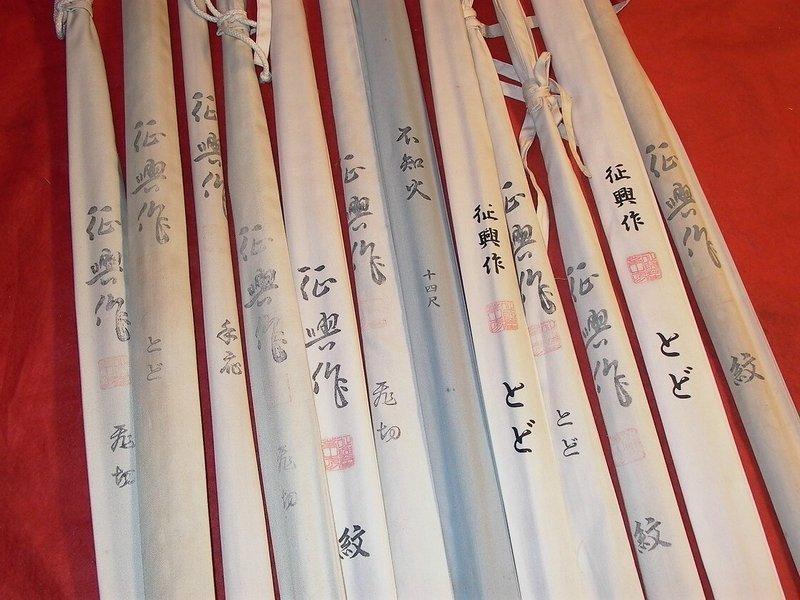 征興作
尭切
征興作
とど
征興作
征興作
尭切
征興作
紋
征興作
尭切
不知火
十四尺
征興作
とど
征興作
とど
征興作
紋
征興作
とど
征興作
紋